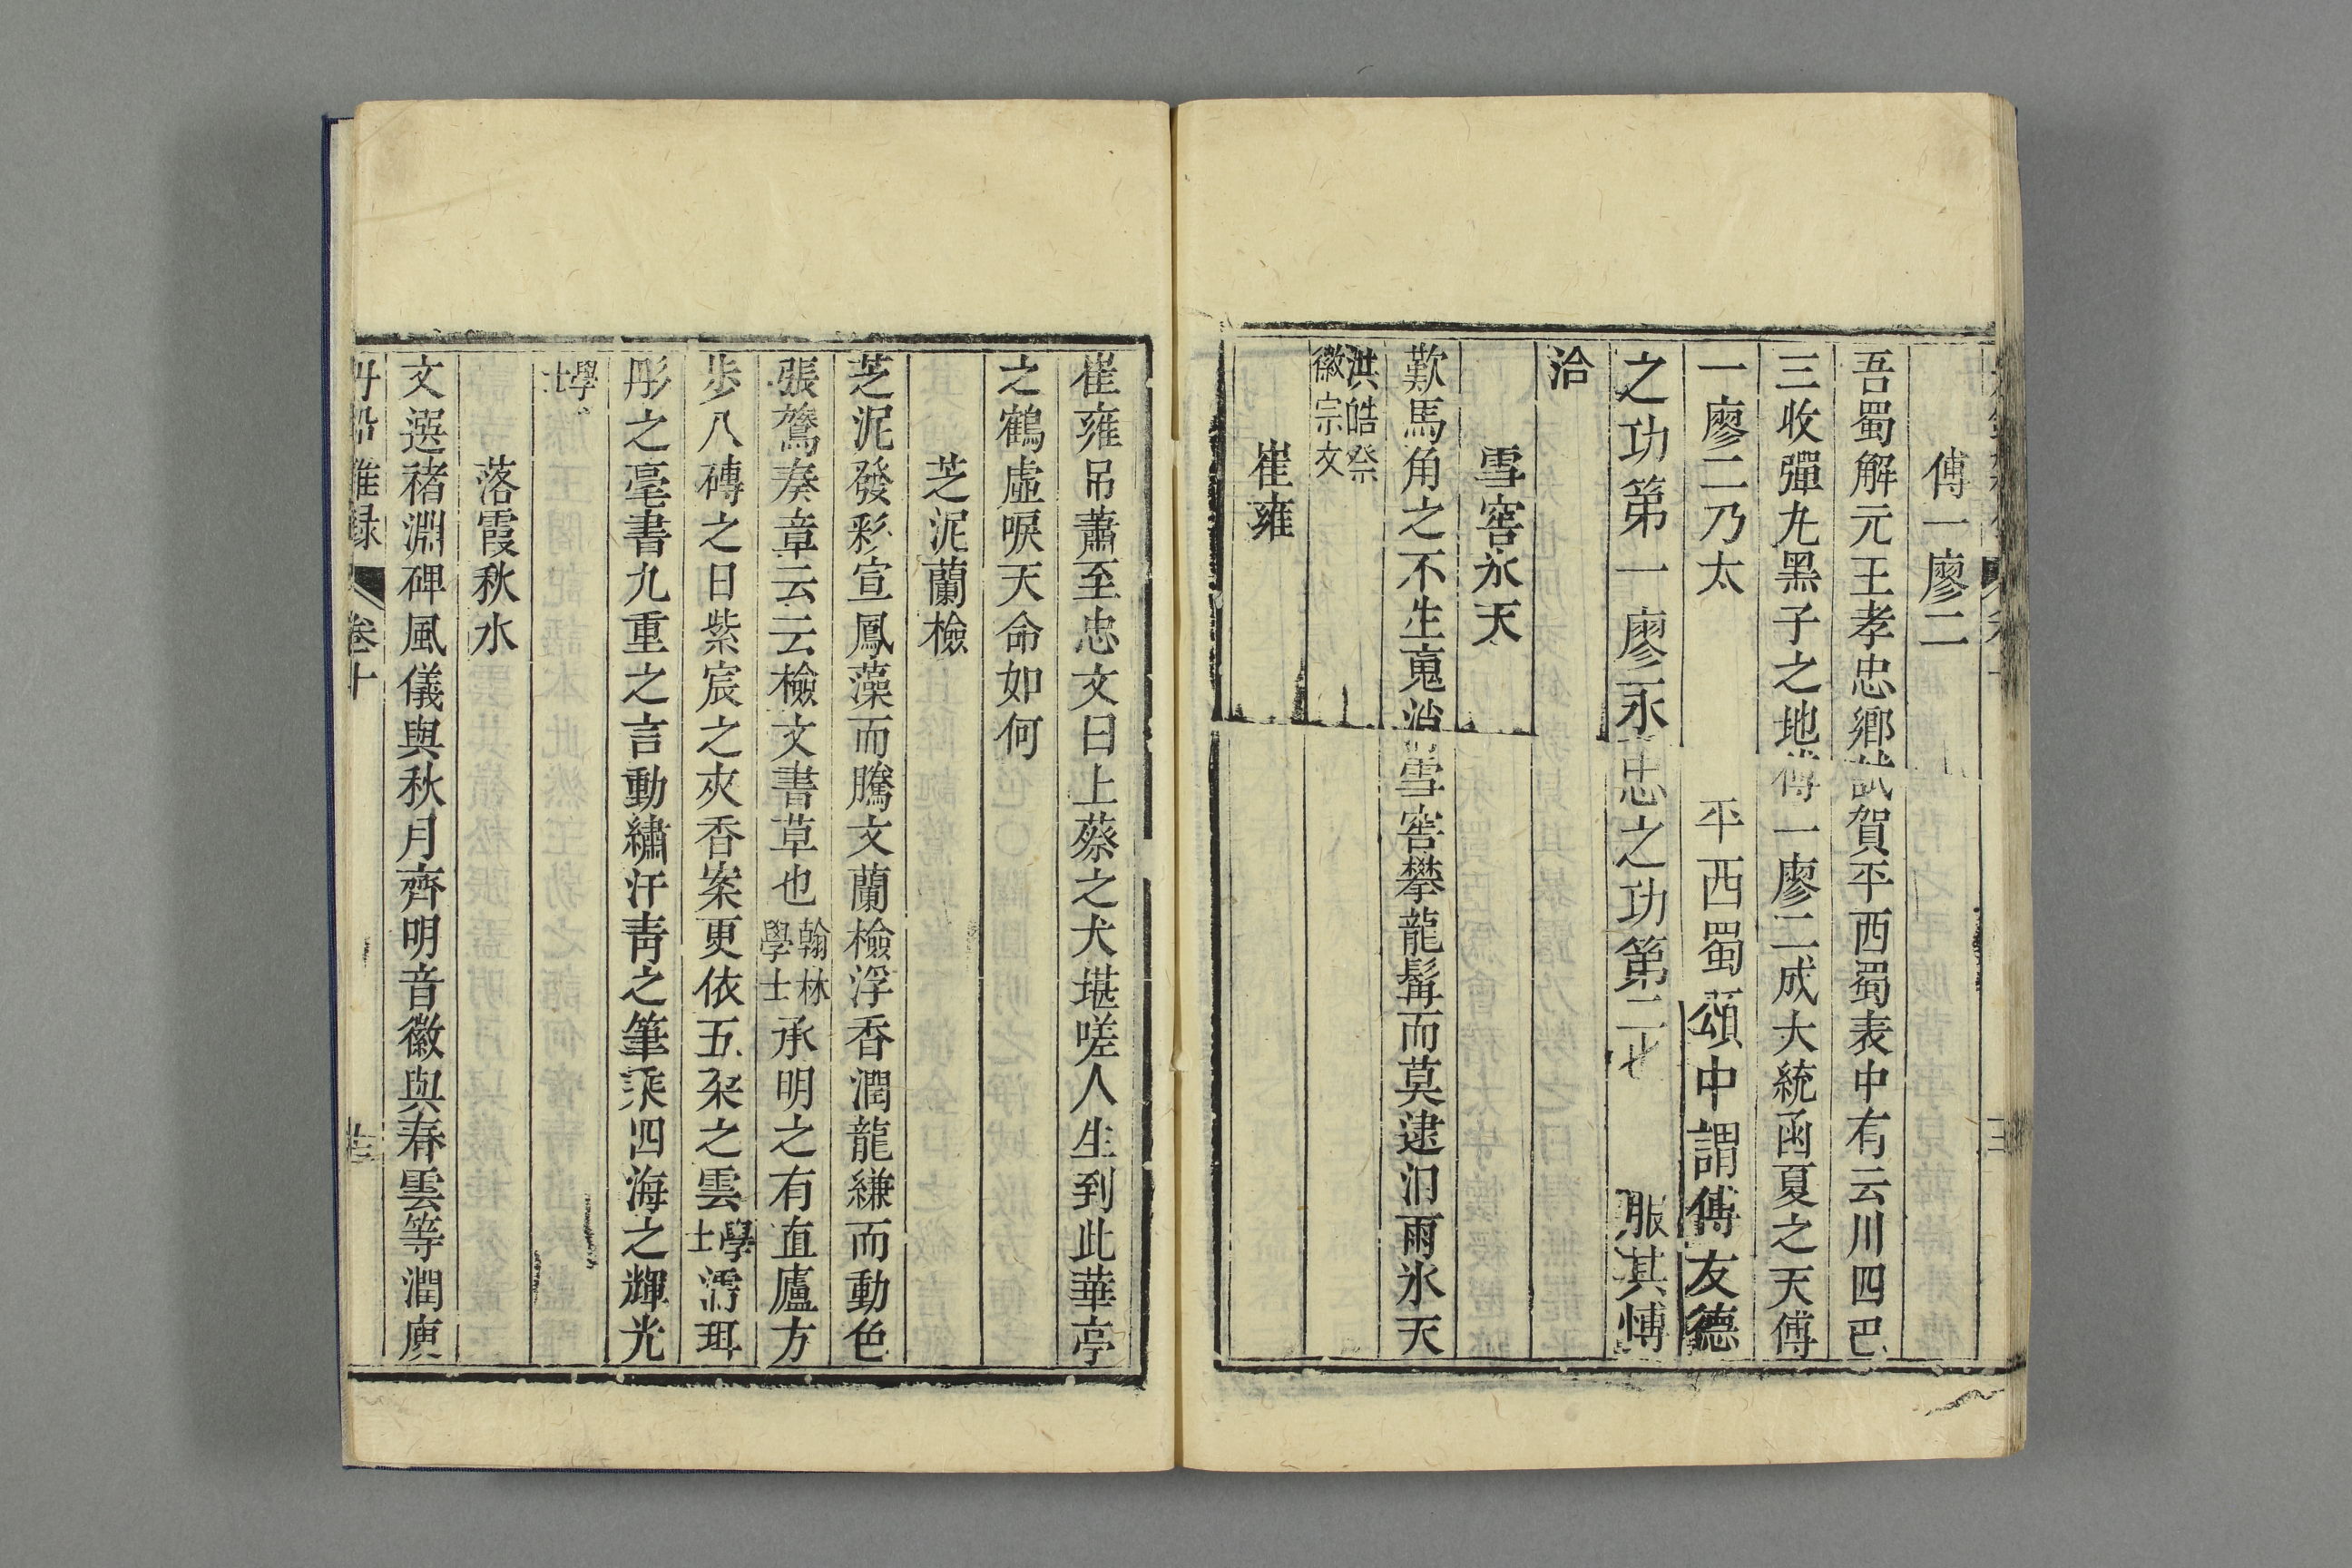 傅一廖二
吾蜀解元王孝忠鄉試賀平西蜀表中有云川四巴
三收彈丸黑子之地傅一廖二成大統函夏之天傅
一廖二乃太 平西蜀頌中謂傅友德
之功第一廖永忠之功第二也 服其愽
洽
雪窖氷天
歎馬角之不生䰟沿雪窖攀龍髯而莫逮汨雨氷天
洪皓祭
徽宗文
崔雍
崔雍吊蕭至忠文曰上蔡之犬堪嗟人生到此華亭
之鶴虛唳天命如何
芝泥蘭檢
芝泥發彩宣鳳藻而騰文蘭檢浮香潤龍縑而動色
張鷟奏章云云檢文書草也翰林學士承明之有直廬方
步八磚之日紫宸之夾香案更依五朶之雲學士濡珥
彤之毫書九重之言動繡汗靑之筆乘四海之輝光
學士
落霞秋水
文選褚淵碑風儀與秋月齊明音徽與春雲等潤庾
丹鉛雜録 卷十